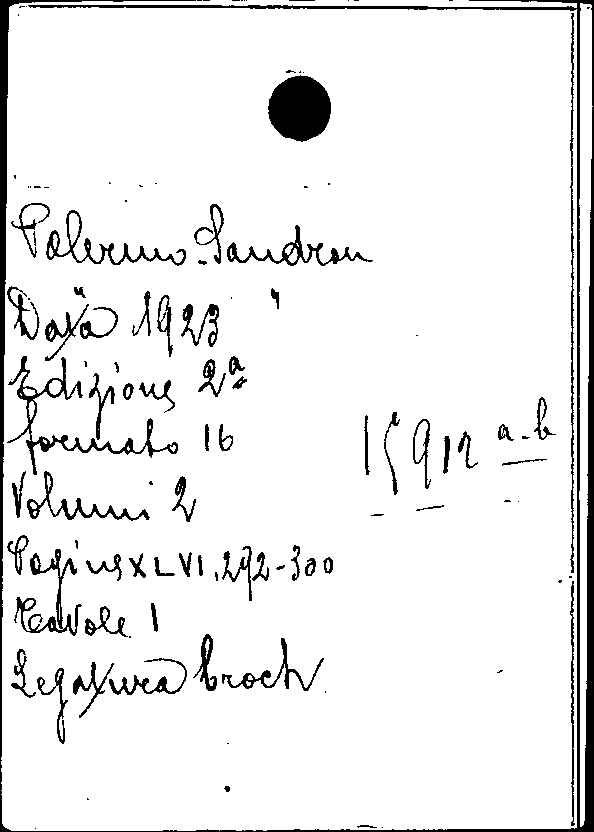 Palermo-Sandron
Data 1923 "
Edizione 2ª
formato 16
15912 a-b
Volumi 2
Pagine XLVI, 292-300
Tavole 1
Legatura broch